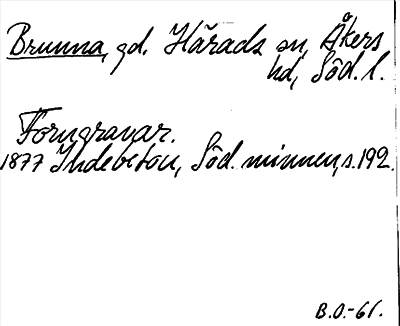 Brunna, gd. Härads sn, Åkers
hd, Söd. l.
Forngravar.
1877 Indebetou, Söd. minnen, s. 192.
B.O.-61.